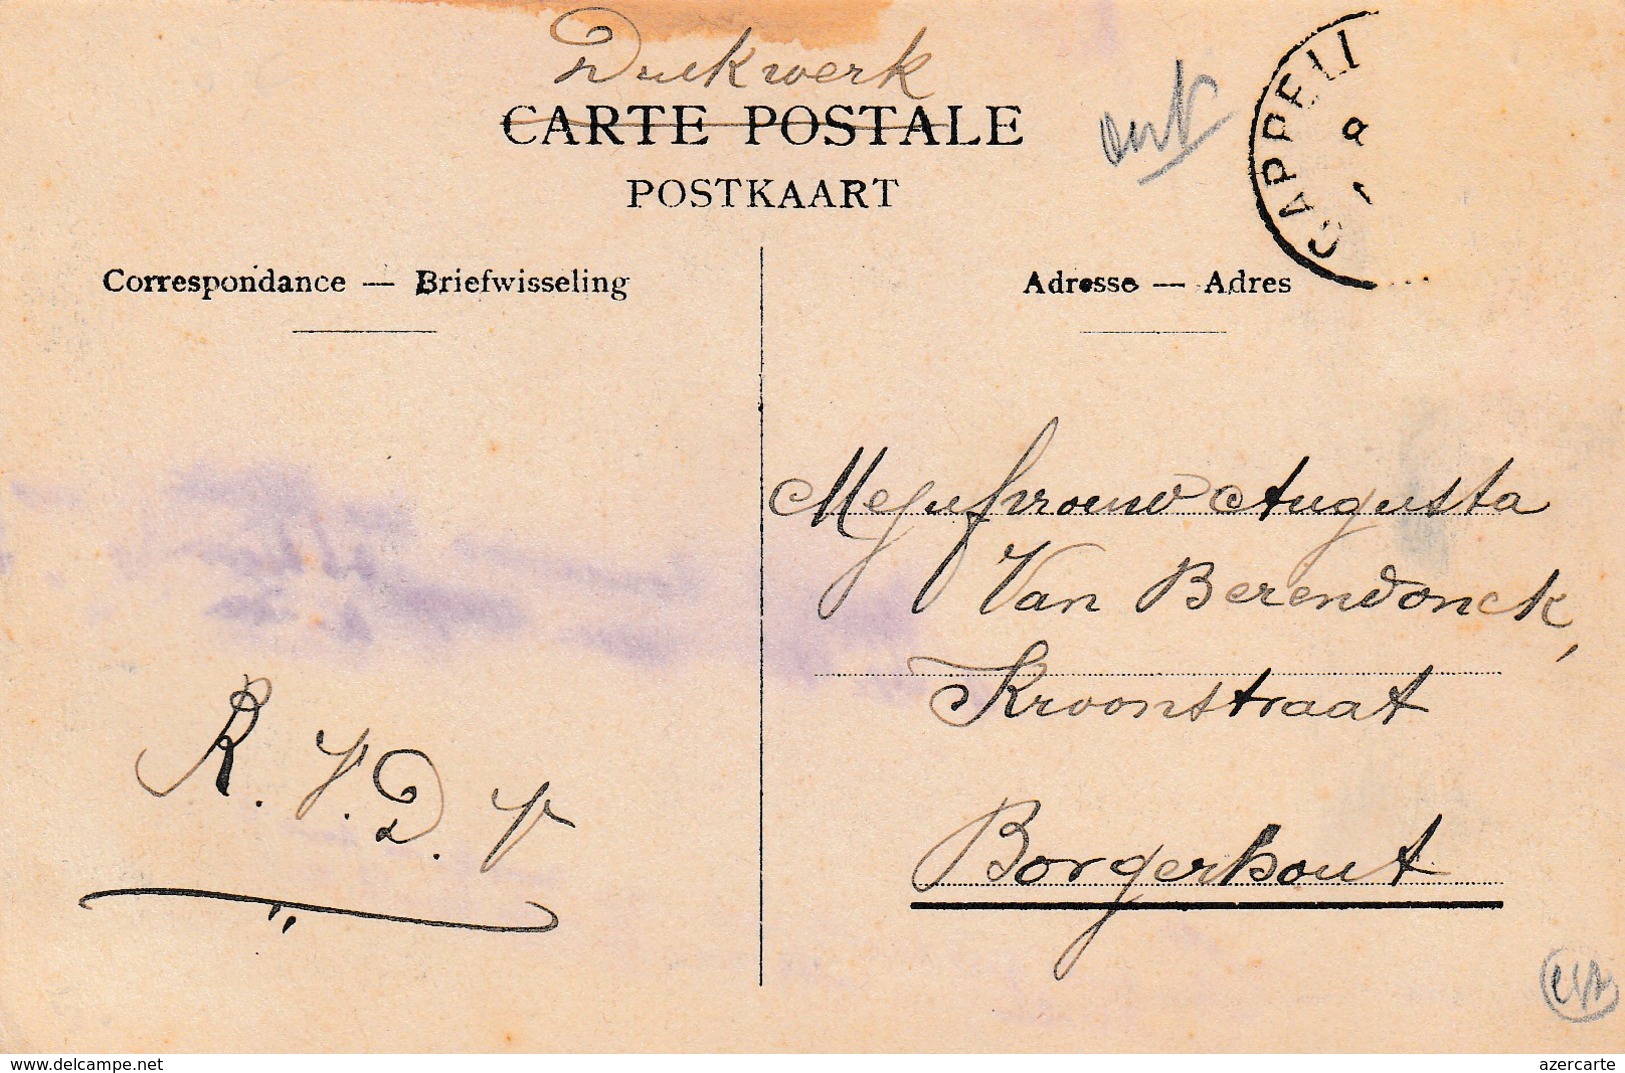 Drukwerk
CARTE POSTALE
POSTKAART
CAPPELL
Correspondance — Briefwisseling
Adresse — Adres
Mejufvrouw Augusta
Van Berendonck,
Kroonstraat
Borgerhout
R. V. D. V
www.delcampe.net
azercarte